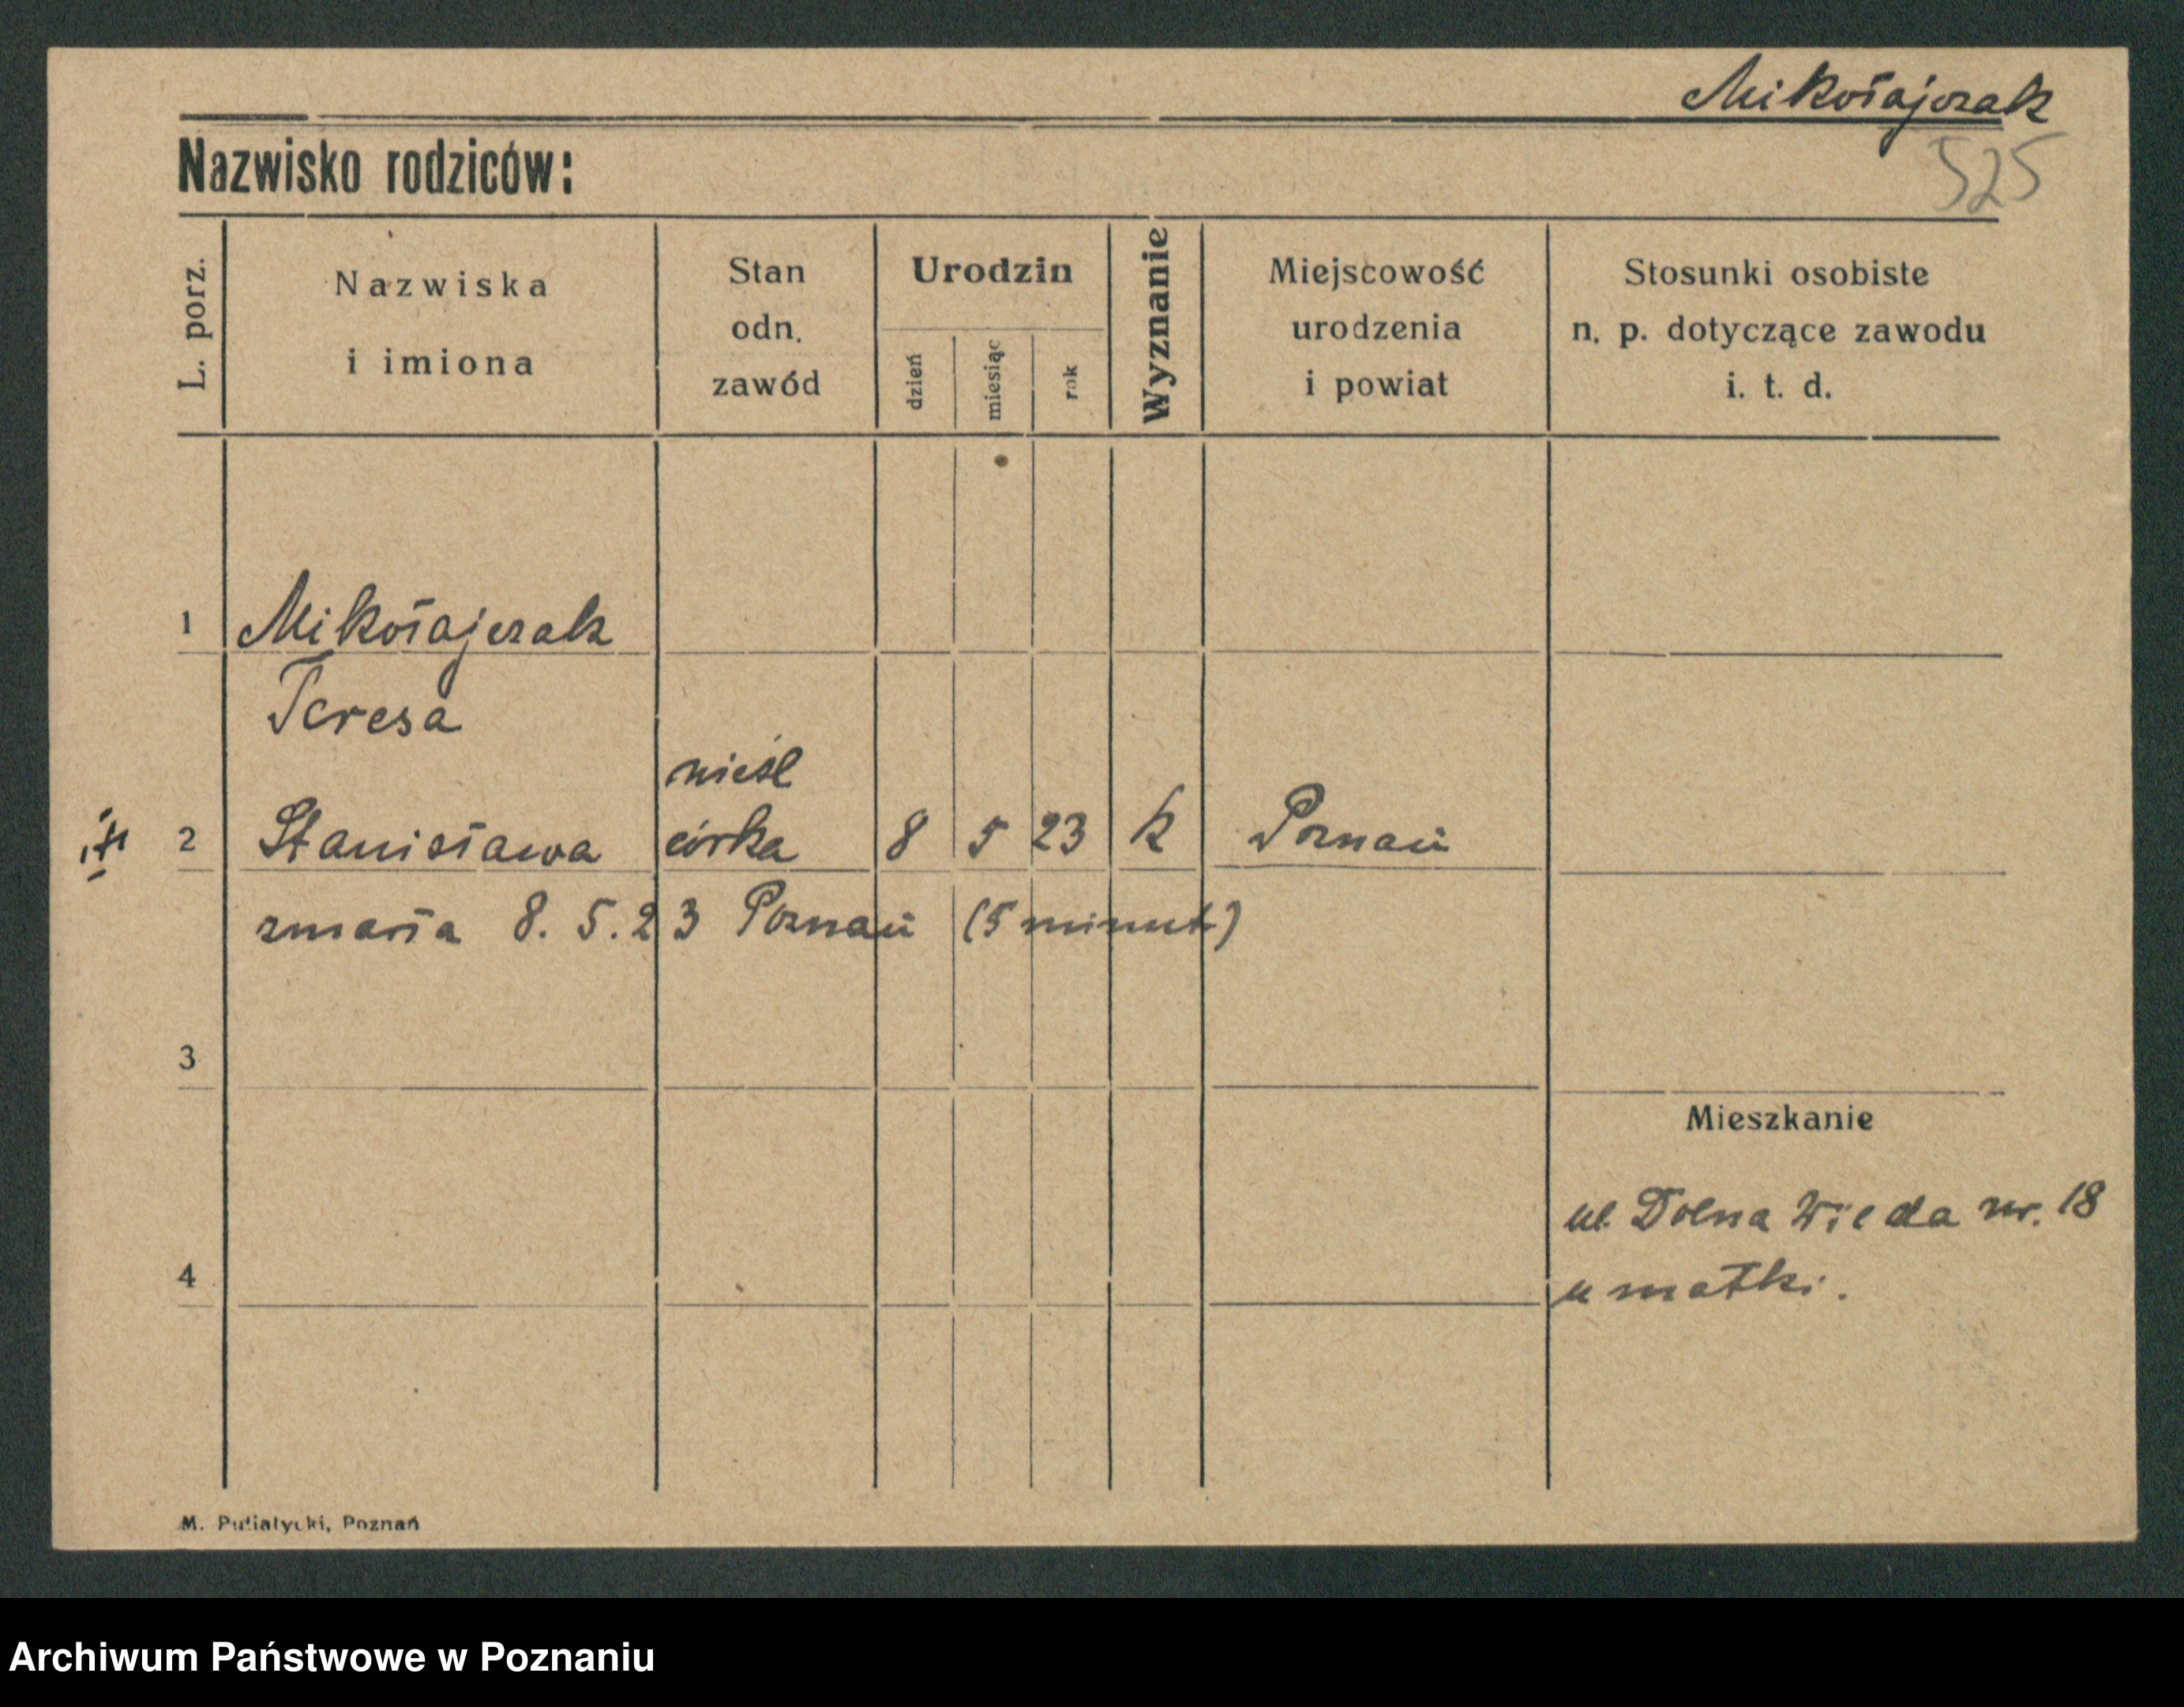 Mikołajczak
525
Nazwisko rodziców:
L. porz.
Nazwiska
i imiona
Stan
odn.
zawód
Urodzin
dzień
miesiąc
rok
Wyznanie
Miejscowość
urodzenia
i powiat
Stosunki osobiste
n. p. dotyczące zawodu
i. t. d.
1 Mikołajczak
Teresa
nieśl
2 Stanisława córka 8 5 23 k Poznań
zmarła 8. 5. 23 Poznań (5 minut)
3
Mieszkanie
ul. Dolna Wilda nr. 18
4 u matki.
M. Putiatycki, Poznań
Archiwum Państwowe w Poznaniu